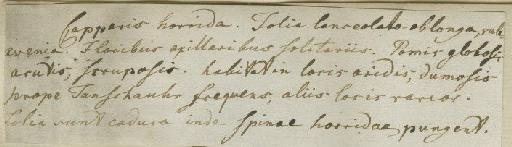 Capparis horrida. Folia lanceolato oblonga, sub
evenia. Floribus axillaribus solitariis. Pomis globosis
acutis, scruposis. habitat in locis aridis, dumosis
prope Tanschauhr frequens, aliis locis rarior.
folia sunt caduca inde spinae horridae, pungent.